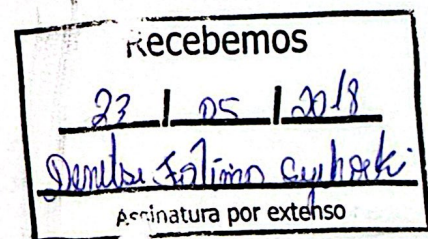 Recebemos
23 / 05 / 2018
Fátima
Assinatura por extenso